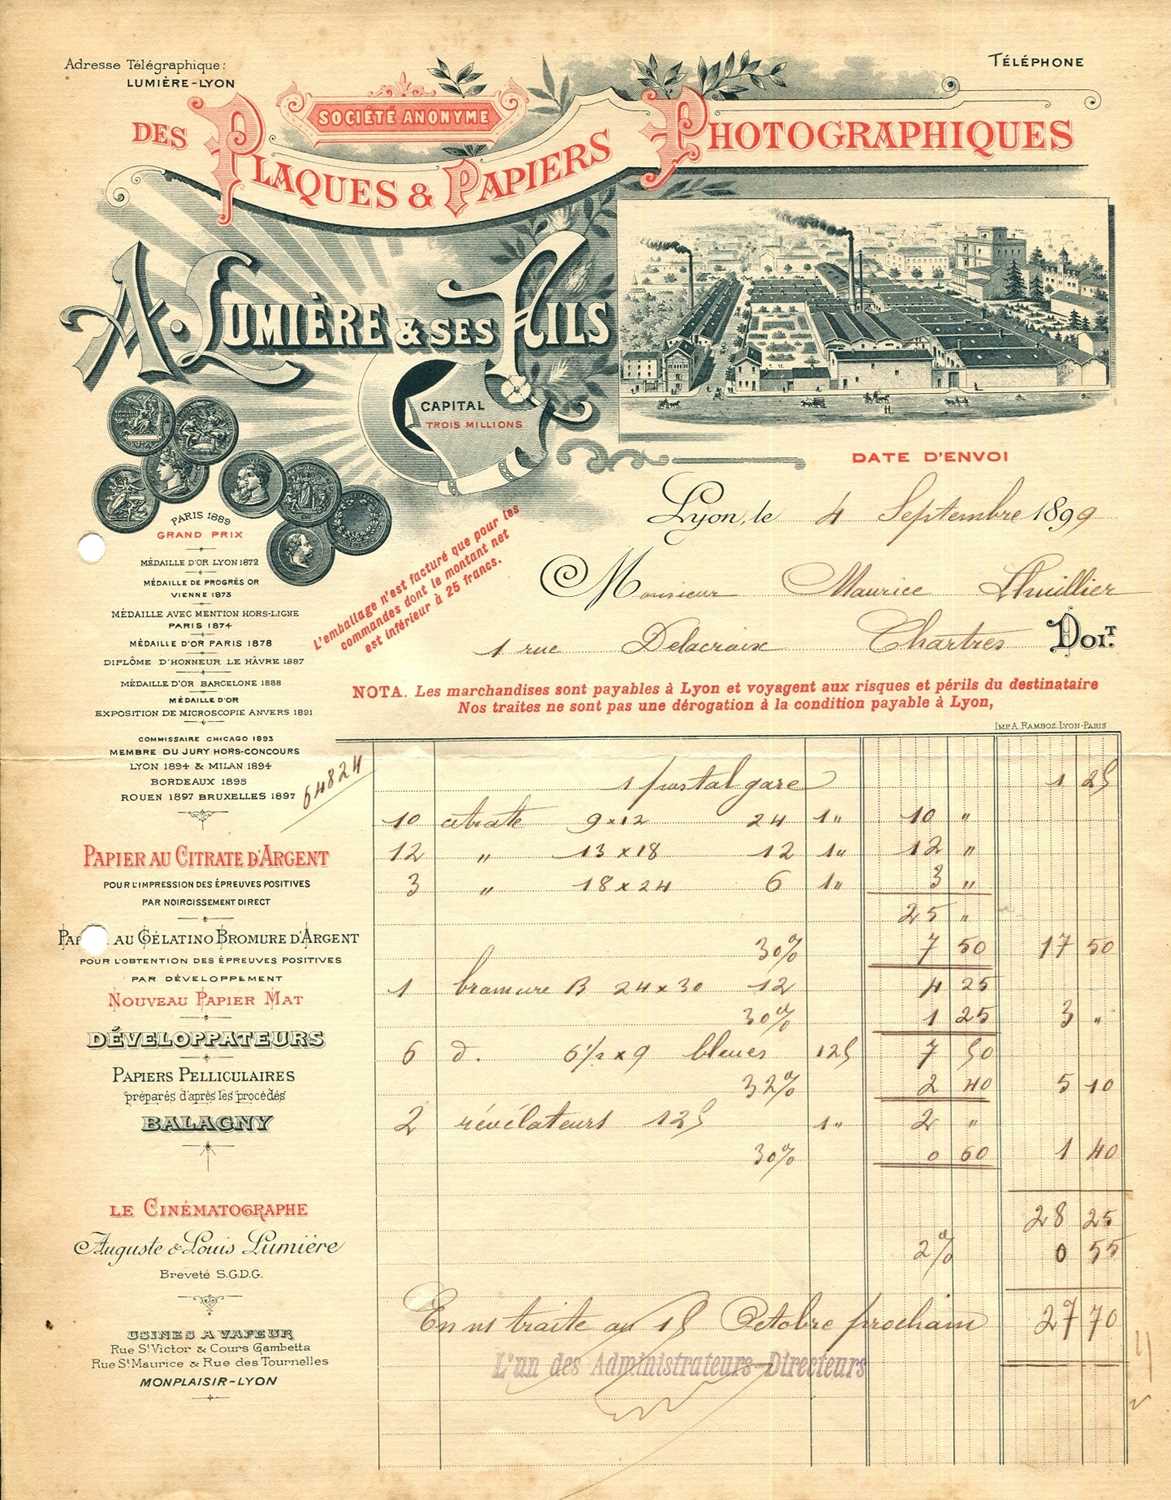 Adresse Télégraphique:
LUMIÈRE-LYON
TÉLÉPHONE
SOCIÉTÉ ANONYME
DES PLAQUES & PAPIERS PHOTOGRAPHIQUES
A. LUMIÈRE & SES FILS
CAPITAL
TROIS MILLIONS
DATE D'ENVOI
Lyon, le 4 Septembre 1899
Monsieur Maurice Lhuillier
1 rue Delacroix Chartres DOIT.
L'emballage n'est facturé que pour les
commandes dont le montant net
est inférieur à 25 francs.
NOTA. Les marchandises sont payables à Lyon et voyagent aux risques et périls du destinataire
Nos traites ne sont pas une dérogation à la condition payable à Lyon,
IMP. A. RAMBOZ. LYON-PARIS
PARIS 1889
GRAND PRIX
MÉDAILLE D'OR LYON 1872
MÉDAILLE DE PROGRÈS OR
VIENNE 1873
MÉDAILLE AVEC MENTION HORS-LIGNE
PARIS 1874
MÉDAILLE D'OR PARIS 1878
DIPLÔME D'HONNEUR LE HÂVRE 1887
MÉDAILLE D'OR BARCELONE 1888
MÉDAILLE D'OR
EXPOSITION DE MICROSCOPIE ANVERS 1891
COMMISSAIRE CHICAGO 1893
MEMBRE DU JURY HORS-CONCOURS
LYON 1894 & MILAN 1894
BORDEAUX 1895
ROUEN 1897 BRUXELLES 1897
64824
PAPIER AU CITRATE D'ARGENT
POUR L'IMPRESSION DES ÉPREUVES POSITIVES
PAR NOIRCISSEMENT DIRECT
AU GÉLATINO BROMURE D'ARGENT
POUR L'OBTENTION DES ÉPREUVES POSITIVES
PAR DÉVELOPPEMENT
NOUVEAU PAPIER MAT
DÉVELOPPATEURS
PAPIERS PELLICULAIRES
préparés d'après les procédés
BALAGNY
LE CINÉMATOGRAPHE
Auguste & Louis Lumière
Breveté S.G.D.G.
USINES A VAPEUR
Rue St Victor & Cours Gambetta
Rue St Maurice & Rue des Tournelles
MONPLAISIR-LYON
1 postal gare 1 25
10 citrate 9 x 12 24 1 " 10 "
12 " 13 x 18 12 1 " 12 "
3 " 18 x 24 6 1 " 3 "
25 "
30% 7 50 17 50
1 bromure B 24 x 30 12 4 25
30% 1 25 3 "
6 d. 6 1/2 x 9 bleues 125 7 50
32% 2 40 5 10
2 révélateurs 125 1 " 2 "
30% 0 60 1 40
28 25
2% 0 55
En n/ traite au 15 Octobre prochain 27 70
L'un des Administrateurs-Directeurs